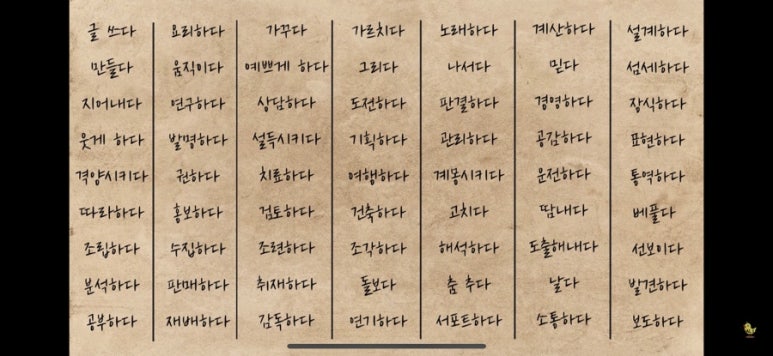 글 쓰다 요리하다 가꾸다 가르치다 노래하다 계산하다 설계하다
만들다 움직이다 예쁘게 하다 그리다 나서다 믿다 섬세하다
지어내다 연구하다 상담하다 도전하다 판결하다 경영하다 장식하다
웃게 하다 발명하다 설득시키다 기획하다 관리하다 공감하다 표현하다
격양시키다 권하다 치료하다 여행하다 계몽시키다 운전하다 통역하다
따라하다 홍보하다 검토하다 건축하다 고치다 땀내다 베플다
조립하다 수집하다 조련하다 조각하다 해석하다 도출해내다 선보이다
분석하다 판매하다 취재하다 돌보다 춤 추다 날다 발견하다
공부하다 재배하다 감독하다 연기하다 서포트하다 소통하다 보도하다